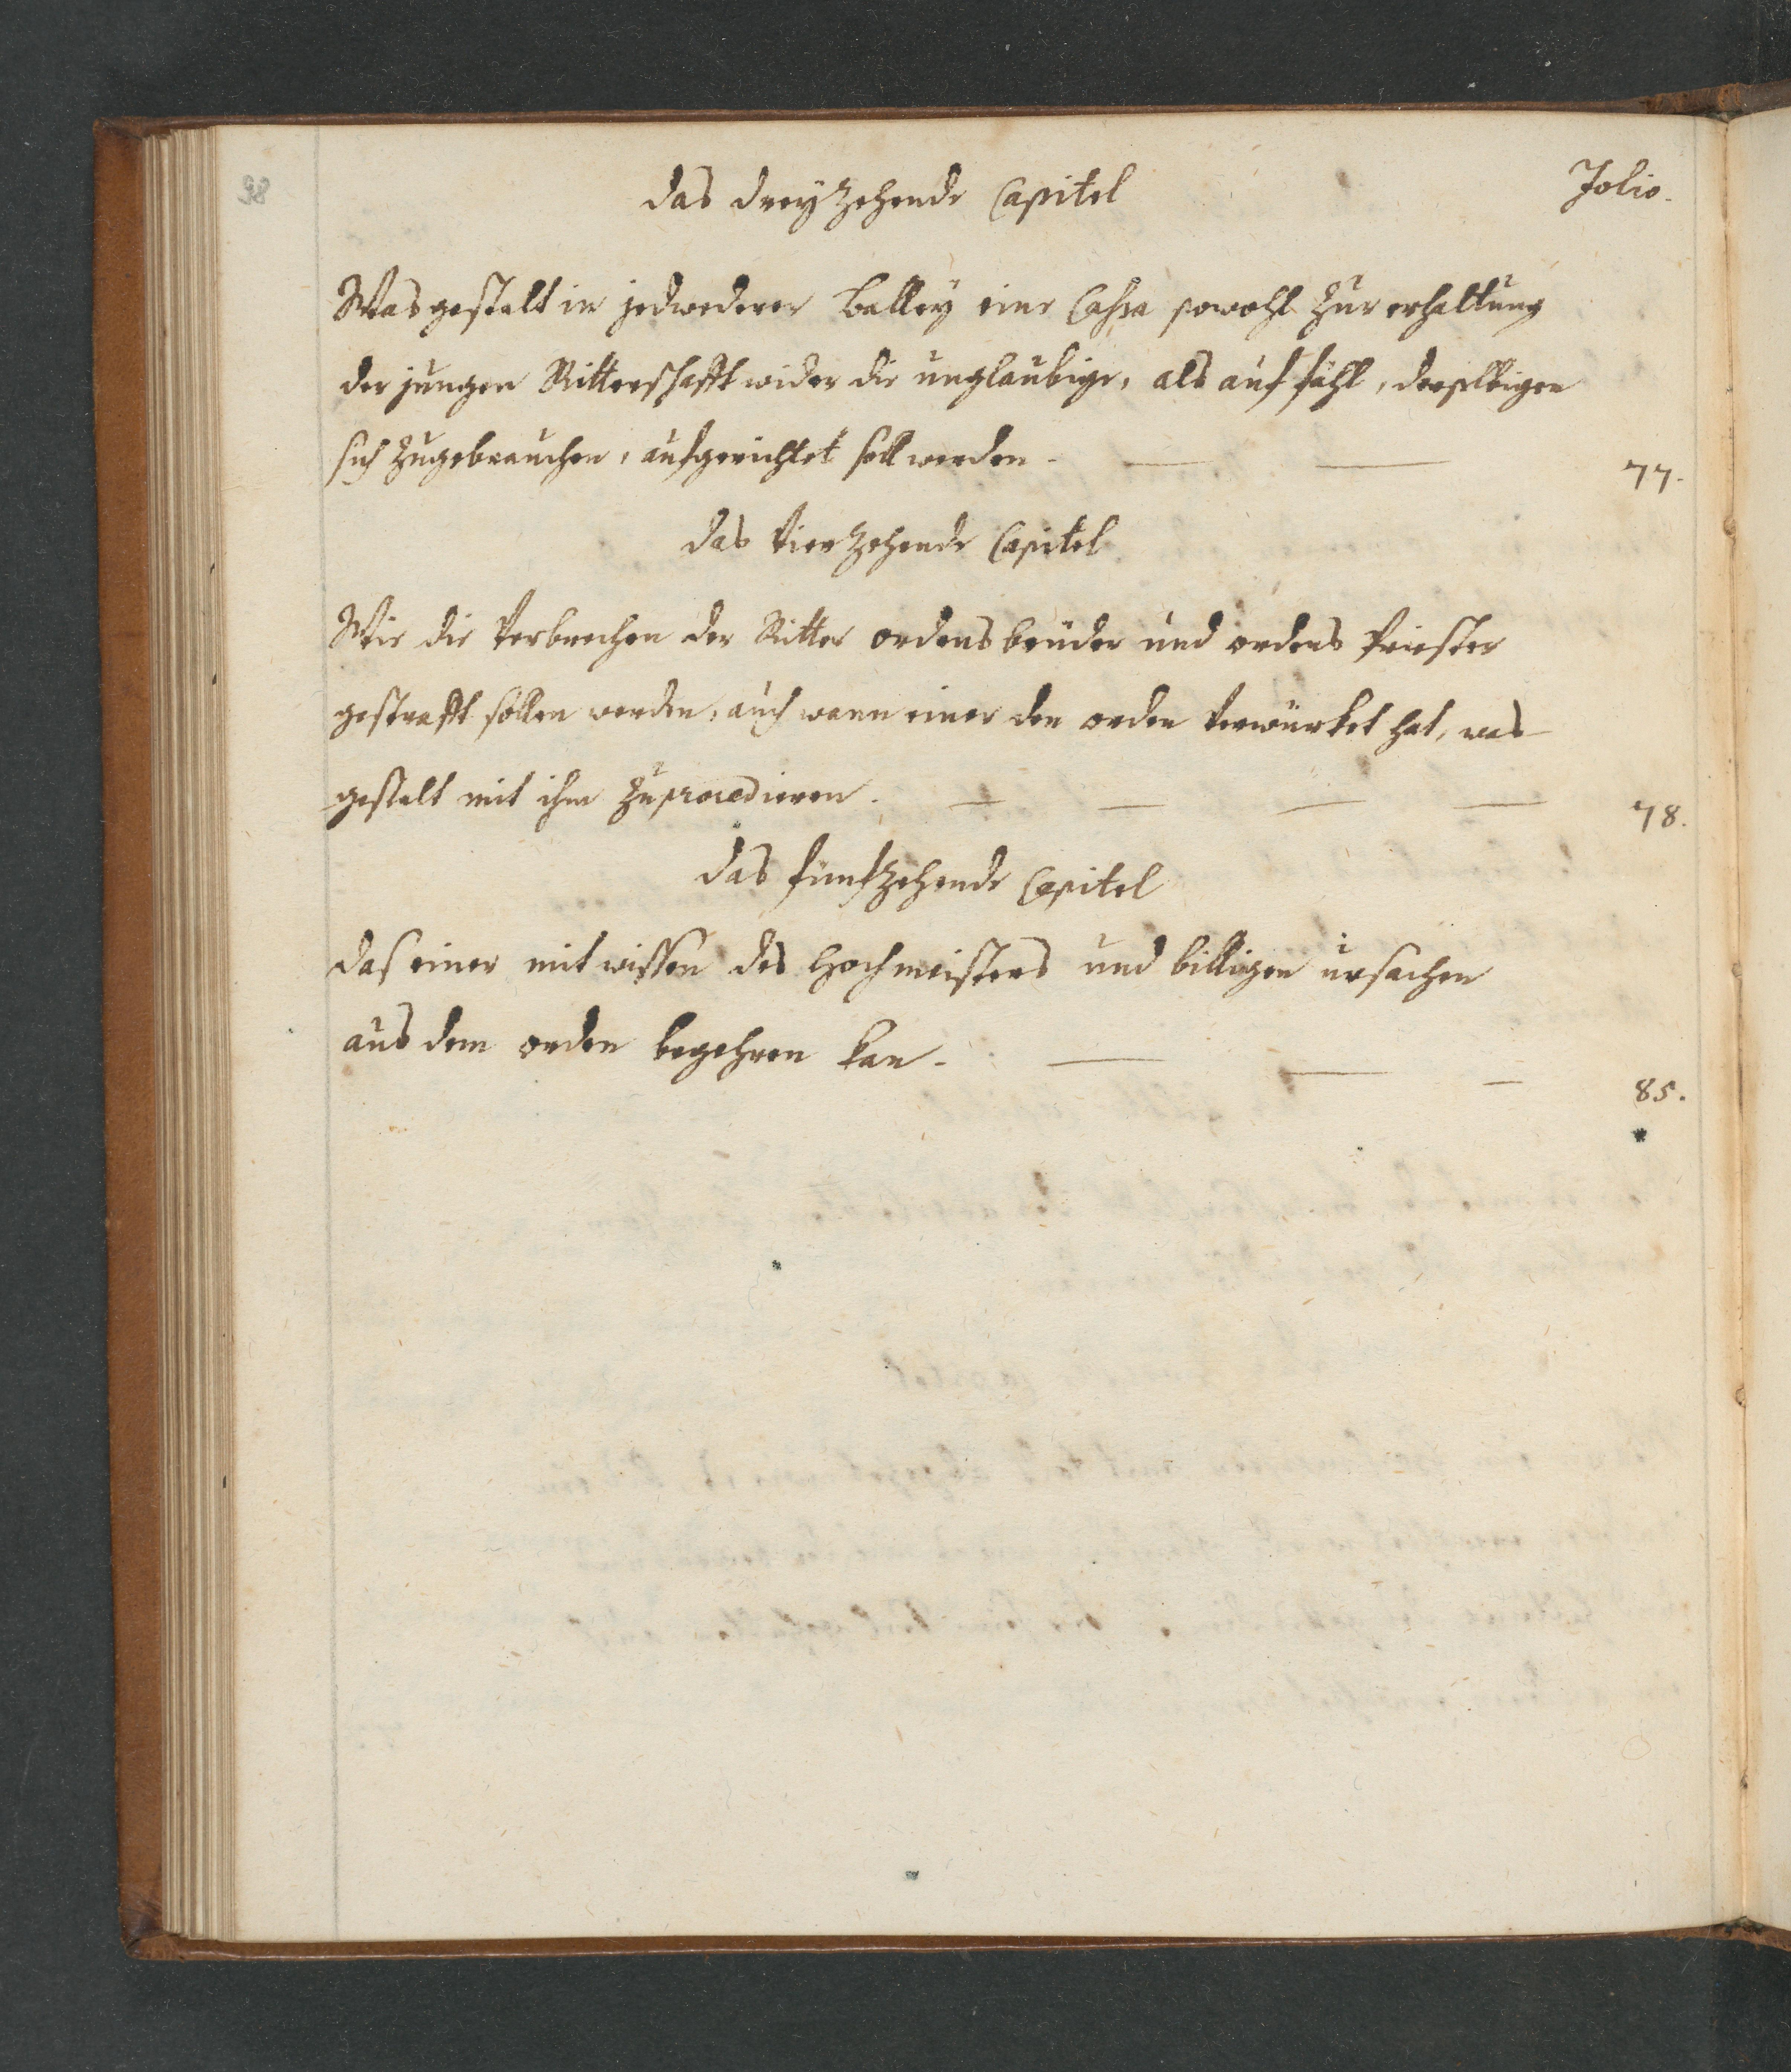 98
das dreyzehende Capitel
Folio.
Was gestalt in jedwederer Balley eine Cassa sowohl zur erhaltung
der jungen Ritterschafft wider die unglaubige, als auf fähl, derselbigen
sich zugebrauchen, aufgerichtet soll werden.
77.
das vierzehende Capitel
Wie die verbrechen der Ritter ordensbrüder und ordens Priester
gestrafft sollen werden, auch wann einer den orden verwürket hat, was
gestalt mit ihm zuprocedieren.
78.
das fünfzehende Capitel
das einer mit wissen des Hochmeisters und billigen ursachen
aus dem orden begehren kan.
85.